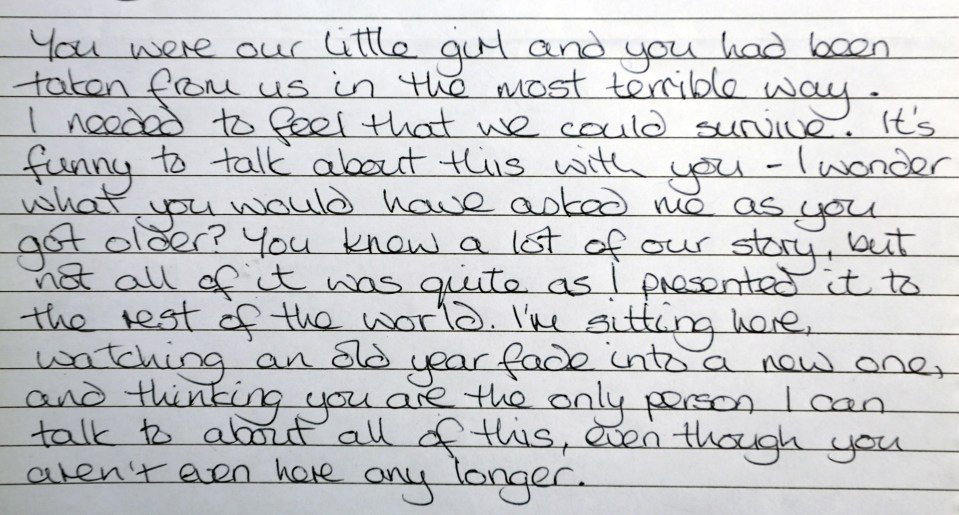 You were our little girl and you had been
taken from us in the most terrible way.
I needed to feel that we could survive. It's
funny to talk about this with you - I wonder
what you would have asked me as you
got older? You knew a lot of our story, but
not all of it was quite as I presented it to
the rest of the world. I'm sitting here,
watching an old year fade into a new one,
and thinking you are the only person I can
talk to about all of this, even though you
aren't even here any longer.